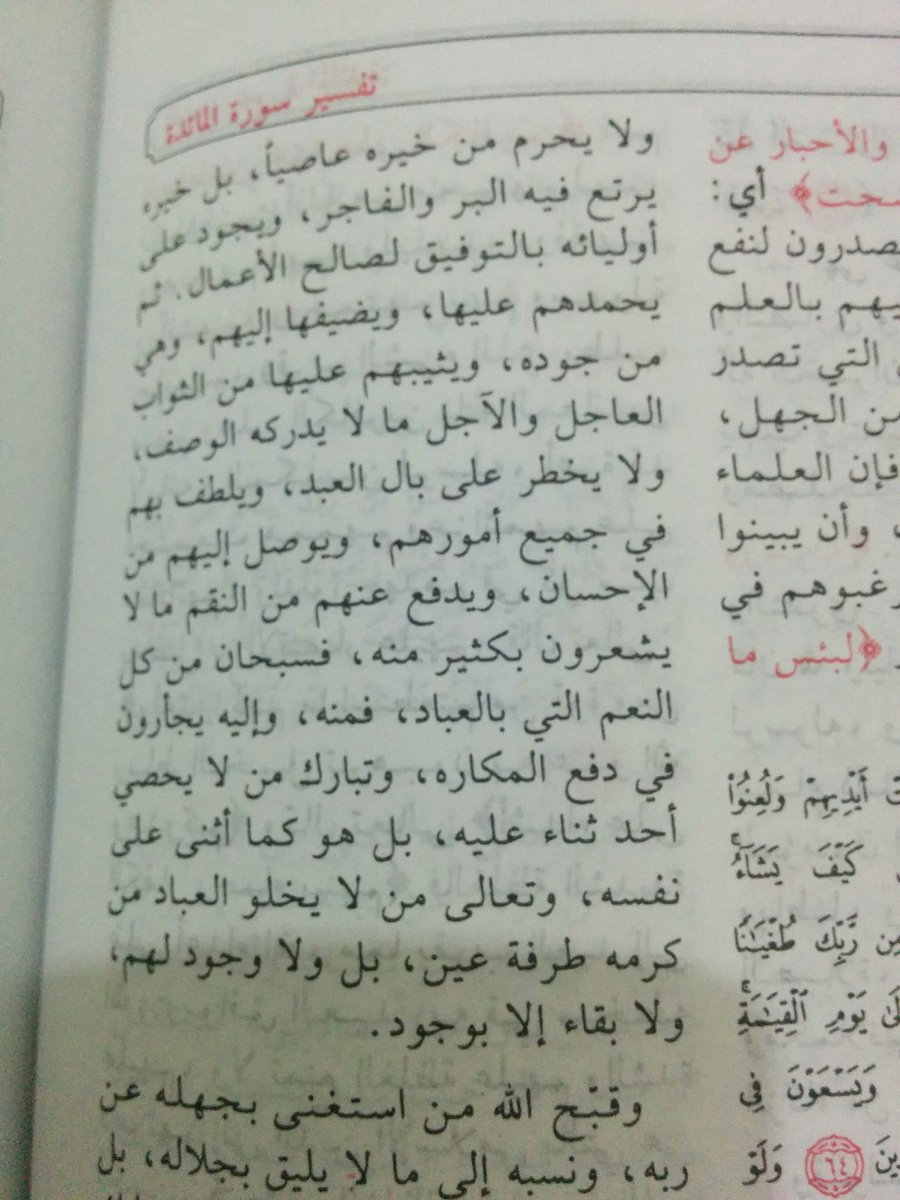 تفسير سورة المائدة
والأحبار عن
﴾ أي:
لنفع
بالعلم
التي تصدر
من الجهل،
فإن العلماء
وأن يبينوا
في
﴿لبئس ما
أَيْدِيهِمْ وَلُعِنُوا۟
كَيْفَ يَشَآءُ
مِن رَّبِّكَ طُغْيَـٰنًا
يَوْمِ ٱلْقِيَـٰمَةِ
وَيَسْعَوْنَ فِى
٦٤ وَلَوْ
ولا يحرم من خيره عاصياً، بل خيره
يرتع فيه البر والفاجر، ويجود على
أوليائه بالتوفيق لصالح الأعمال. ثم
يحمدهم عليها، ويضيفها إليهم، وهي
من جوده، ويثيبهم عليها من الثواب
العاجل والآجل ما لا يدركه الوصف،
ولا يخطر على بال العبد، ويلطف بهم
في جميع أمورهم، ويوصل إليهم من
الإحسان، ويدفع عنهم من النقم ما لا
يشعرون بكثير منه، فسبحان من كل
النعم التي بالعباد، فمنه، وإليه يجأرون
في دفع المكاره، وتبارك من لا يحصي
أحد ثناء عليه، بل هو كما أثنى على
نفسه، وتعالى من لا يخلو العباد من
كرمه طرفة عين، بل ولا وجود لهم،
ولا بقاء إلا بوجود.
وقبّح الله من استغنى بجهله عن
ربه، ونسبه إلى ما لا يليق بجلاله، بل